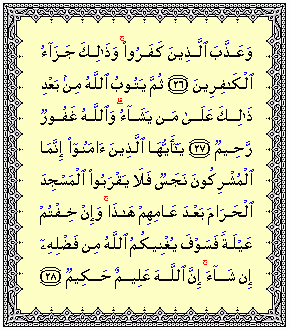 وَعَذَّبَ ٱلَّذِينَ كَفَرُوا۟ ۚ وَذَٰلِكَ جَزَآءُ
ٱلْكَٰفِرِينَ ﴿٢٦﴾ ثُمَّ يَتُوبُ ٱللَّهُ مِنۢ بَعْدِ
ذَٰلِكَ عَلَىٰ مَن يَشَآءُ ۗ وَٱللَّهُ غَفُورٌ
رَّحِيمٌ ﴿٢٧﴾ يَٰٓأَيُّهَا ٱلَّذِينَ ءَامَنُوٓا۟ إِنَّمَا
ٱلْمُشْرِكُونَ نَجَسٌ فَلَا يَقْرَبُوا۟ ٱلْمَسْجِدَ
ٱلْحَرَامَ بَعْدَ عَامِهِمْ هَٰذَا ۚ وَإِنْ خِفْتُمْ
عَيْلَةً فَسَوْفَ يُغْنِيكُمُ ٱللَّهُ مِن فَضْلِهِۦٓ
إِن شَآءَ ۚ إِنَّ ٱللَّهَ عَلِيمٌ حَكِيمٌ ﴿٢٨﴾